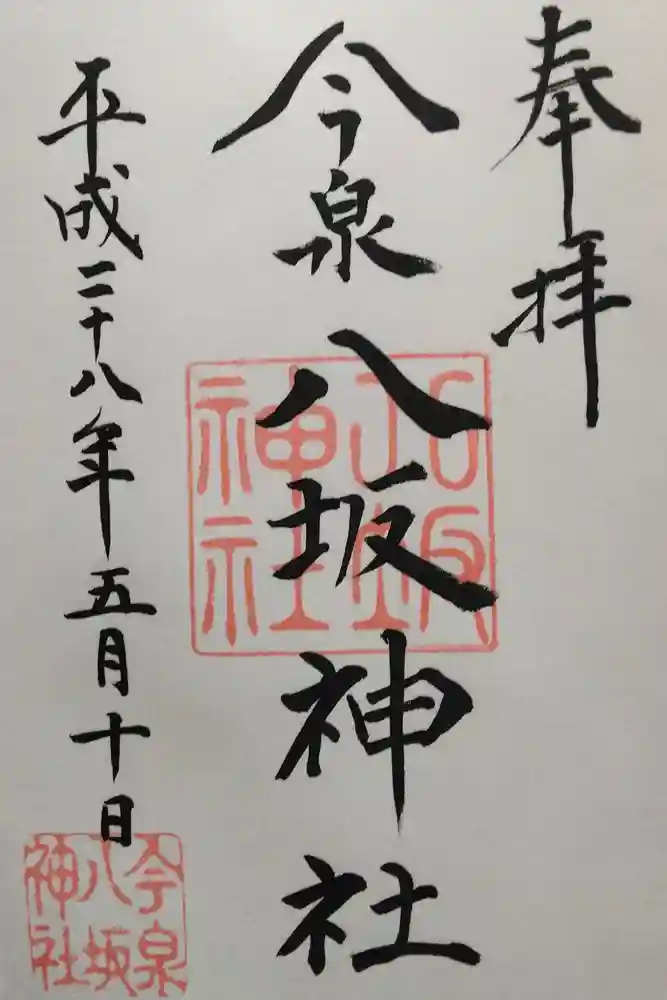 奉拝
今泉八坂神社
平成二十八年五月十日
八坂神社
今泉八坂神社